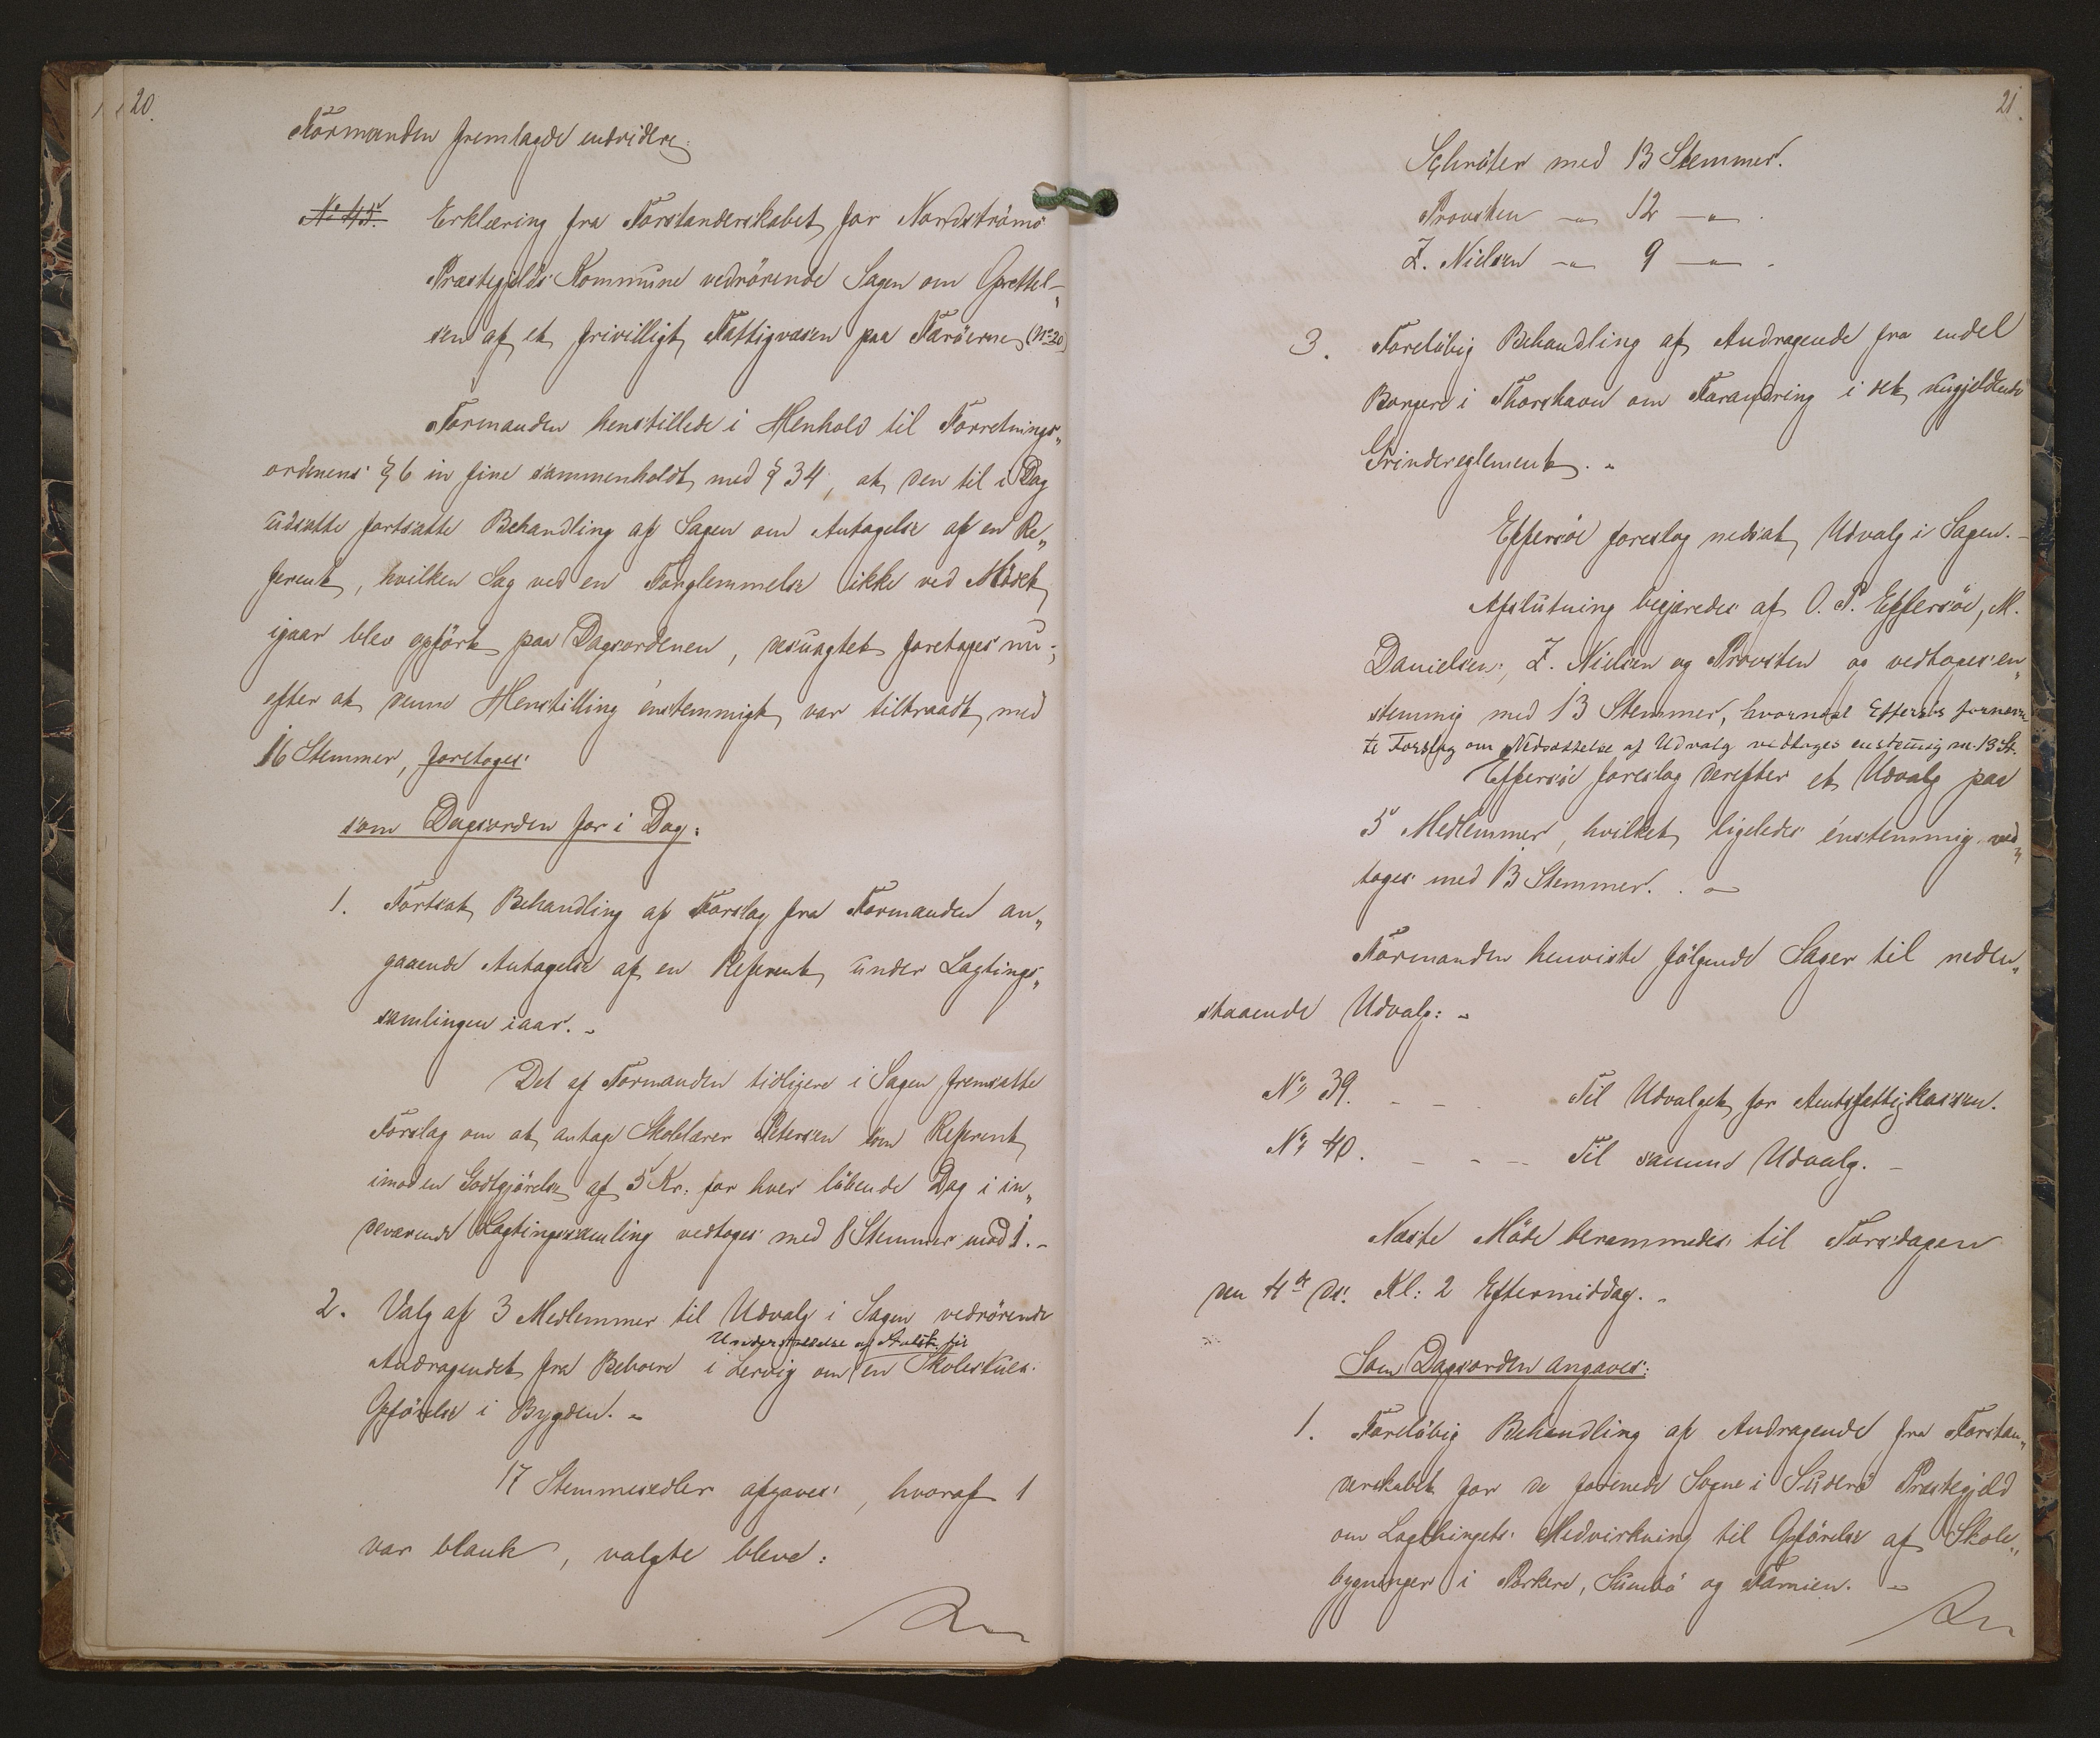 20.
Formanden fremlagde endvidere:
No 45. Erklæring fra Forstanderskabet for Nordströmö
Præstegjelds Kommune vedrörende Sagen om Oprettel-
sen af et frivilligt Fattigvæsen paa Færöerne (No 20)
Formanden henstillede i Henhold til Forretnings„
ordenens § 6 in fine sammenholdt med § 34, at den til i Dag
udsatte fortsatte Behandling af Sagen om Antagelse af en Re„
ferent, hvilken Sag ved en Forglemmelse ikke ved Mödet
igaar blev opfört paa Dagsordenen, desuagtet foretages nu;
efter at denne Henstilling énstemmigt var tiltraadt med
16 Stemmer, foretoges
som Dagsorden for i Dag:
1. Fortsat Behandling af Forslag fra Formanden an„
gaaende Antagelse af en Referent under Lagtings„
samlingen iaar. -
Det af Formanden tidligere i Sagen fremsatte
Forslag om at antage Skolelærer Petersen som Referent
imod en Godtgjörelse af 5 Kr. for hver löbende Dag i in„
deværende Lagtingssamling vedtoges med 8 Stemmer mod 1. -
2. Valg af 3 Medlemmer til Udvalg i Sagen vedrörende
Understöttelse af til
Andragendet fra Beboere i Lervig om en Skolestues
Opförelse i Bygden. -
17 Stemmesedler afgaves, hvoraf 1
var blank, valgte bleve:
21.
Schröter med 13 Stemmer.
Provsten -„- 12 -„- .
Z. Nielsen -„- 9 -„- .
3. Forelöbig Behandling af Andragende fra endel
Borgere i Thorshavn om Forandring i det nugjeldende
Grindereglement. -
Effersöe foreslog nedsat Udvalg i Sagen. -
Afslutning begjæredes af O. P. Effersöe, M.
Danielsen, Z. Nielsen og Provsten og vedtoges en„
stemmig med 13 Stemmer, hvornæst Effersöes fornævn-
te Forslag om Nedsættelse af Udvalg vedtoges enstemig m. 13 St.
Effersöe foreslog derefter et Udvalg paa
5 Medlemmer, hvilket ligeledes énstemmig ved„
toges med 13 Stemmer. -
Formanden henviste fölgende Sager til neden„
staaende Udvalg: -
No 39. - - Til Udvalget for Amtsfattigkassen.
No 40. - - - Til samme Udvalg. -
Næste Möde berammedes til Torsdagen
den 4de ds. Kl: 2 Eftermiddag. -
Som Dagsorden angaves:
1. Forelöbig Behandling af Andragende fra Forstan„
derskabet for de forenede Sogne i Süderö Præstegjeld
om Lagthingets Medvirkning til Opförelse af Skole„
bygninger i Porkere, Sumbö og Famien. -